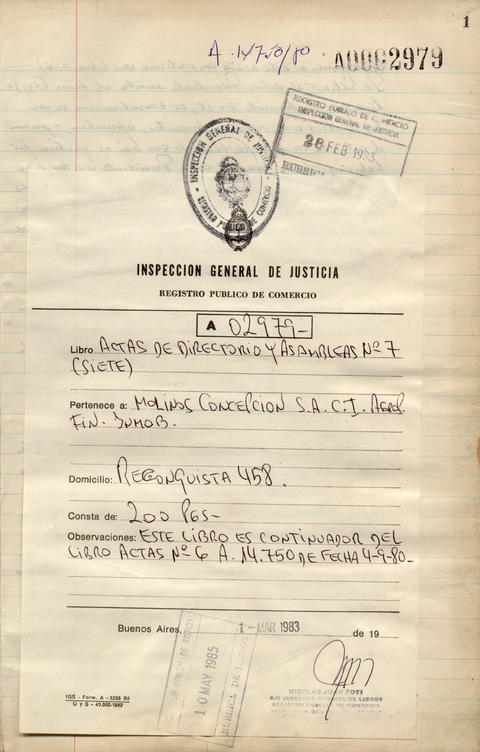 1
A 14750/80
A0002979
REGISTRO PUBLICO DE COMERCIO
INSPECCION GENERAL DE JUSTICIA
28 FEB 1983
RUBRICA
INSPECCION GENERAL DE JUSTICIA
REGISTRO PUBLICO DE COMERCIO
INSPECCION GENERAL DE JUSTICIA
REGISTRO PUBLICO DE COMERCIO
A 02979-
Libro ACTAS DE DIRECTORIO Y ASAMBLEAS Nº 7
(SIETE)
Pertenece a: MOLINOS CONCEPCION S.A.C.I. AGROP.
FIN. INMOB.
Domicilio: RECONQUISTA 458.
Consta de: 200 PGS-
Observaciones: ESTE LIBRO ES CONTINUADOR DEL
LIBRO ACTAS Nº 6 A. 14.750 DE FECHA 4-9-80-
Buenos Aires, 1-MAR 1983 de 19
10 MAY 1985
RUBRICA DE LIBROS
NICOLAS JUAN FOTI
REGISTRO PUBLICO DE COMERCIO
IGS - Form. A - 3256 BS
O y S - 40.000-1982